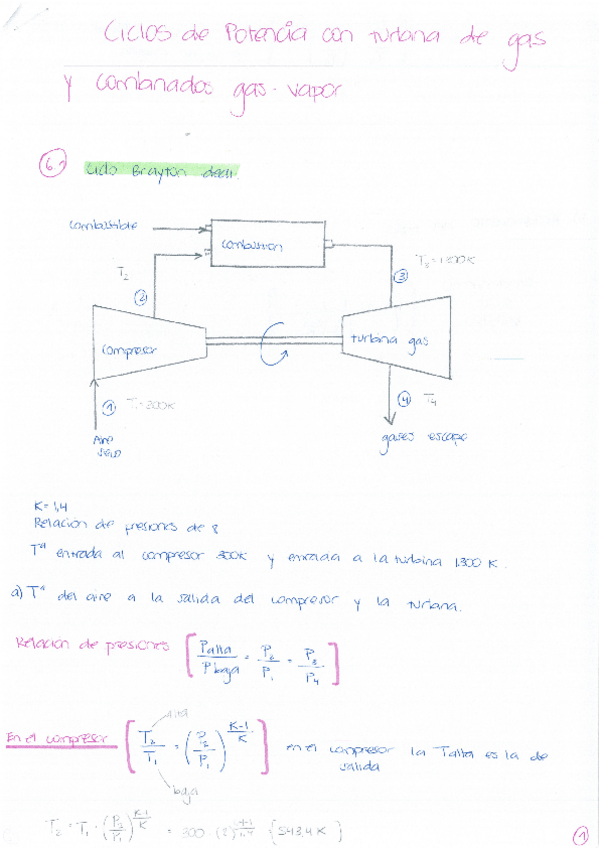 Ciclos de Potencia con turbina de gas
y combinados gas-vapor
6.1 Ciclo Brayton ideal.
combustible
combustion
T₂
②
③ T₃=1300K
compresor
turbina gas
① T₁=300K
④ T₄
Aire
gases escape
K=1,4
Relación de presiones de 8
Tª entrada al compresor 300K y entrada a la turbina 1300 K.
a) Tª del aire a la salida del compresor y la turbina.
Relación de presiones [Palta/Pbaja = P₂/P₁ = P₃/P₄]
alta
En el compresor [T₂/T₁ = (P₂/P₁)^(K-1/K)] en el compresor la Talta es la de
salida
baja
T₂ = T₁ · (P₂/P₁)^(K-1/K) = 300 · (8)^(1,4-1/1,4) {543,4K}
①